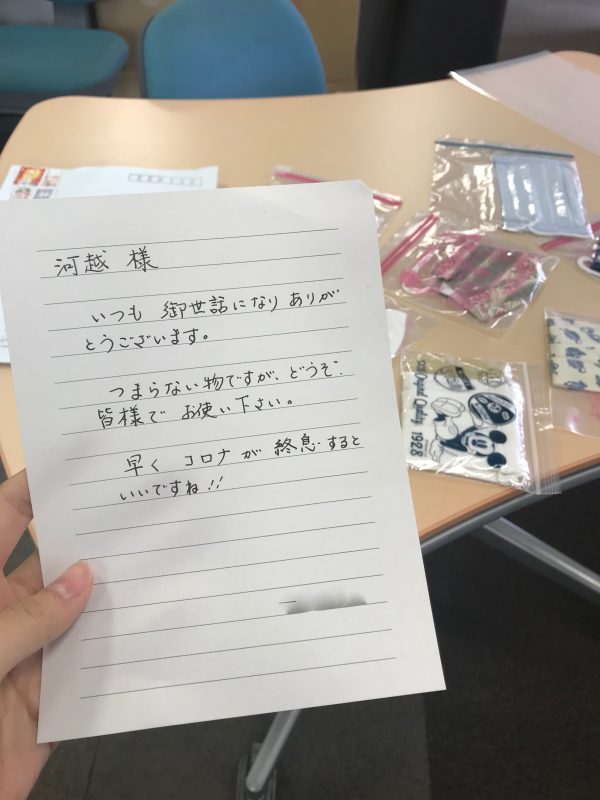 河越 様
いつも 御世話になり ありが
とうございます。
つまらない物ですが、どうぞ
皆様で お使い下さい。
早く コロナが 終息すると
いいですね!!
1928